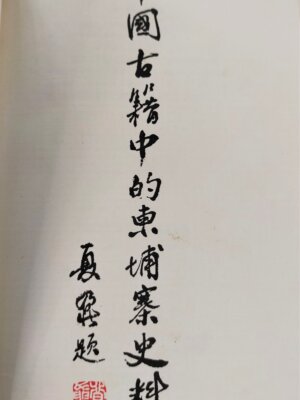 中國古籍中的柬埔寨史料
夏鼐題